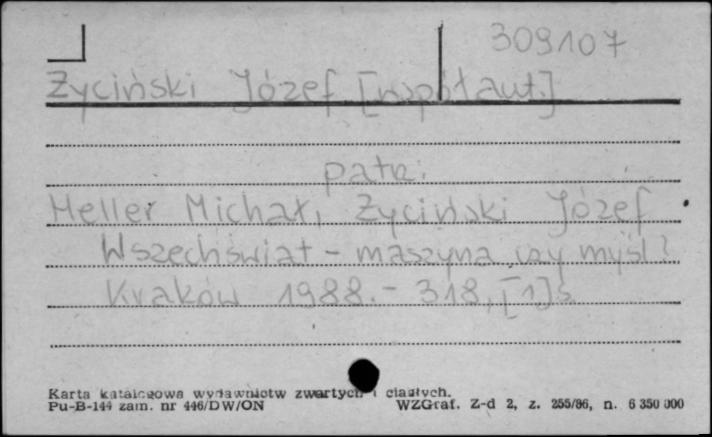 309107
Życiński Józef [współaut.]
patrz:
Heller Michał, Życiński Józef
Wszechświat - maszyna czy myśl?
Kraków 1988. - 318, [1] s.
Karta katalogowa wydawnictw zwartych i ciągłych.
Pu-B-144 zam. nr 446/DW/ON WZGraf. Z-d 2, z. 255/86, n. 6 350 000